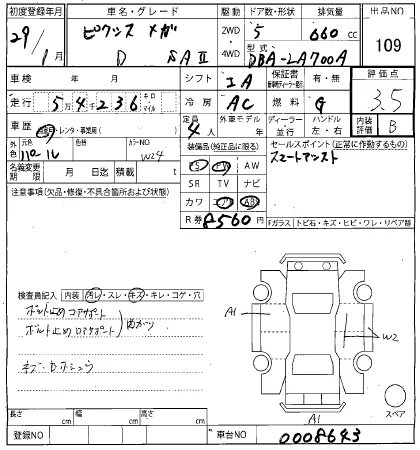 初度登録年月 車名・グレード 駆動 ドア数・形状 排気量 出品NO
29年 1月 ピクシス メガ 2WD 5 660 cc 109
D SAⅢ 4WD 型式 DBA-LA700A
車検 年 月 シフト IA 保証書 有・無 評価点
走行 54236 キロ マイル 冷房 AC 燃料 G 3.5
車歴 自家用・レンタ・事業用( ) 定員 4人 外車モデル 年 ディーラー 並行 ハンドル 左・右 内装評価 B
外色 元色 パール カラーNO W24 装備品(純正品に限る) セールスポイント(正常に作動するもの)
名義変更期限 月 日迄 積載 t PS PW AW スマートアシスト
注意事項(欠品・修復・不具合箇所および状態) SR TV ナビ
カワ エアB ABS
R券 8560円 Fガラス トビ石・キズ・ヒビ・ワレ・リペア跡
検査員記入 内装 汚レ・スレ・キズ・キレ・コゲ・穴
ボルト止め コアサポート
A1
W2
A1
スペア
長さ cm 幅 cm 高さ cm
登録NO 車台NO 0008643